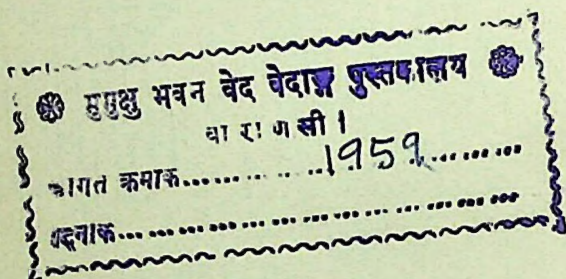 मुमुक्षु भवन वेद वेदाङ्ग पुस्तकालय
वा रा ण सी ।
आगत क्रमांक.............1959.........
दिनांक.................................